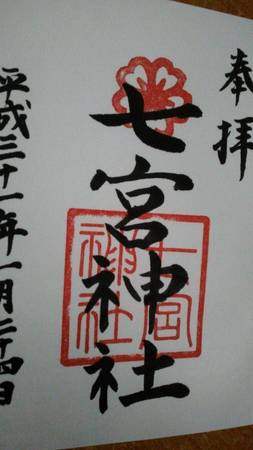 奉拝
七宮神社
七宮神社
平成三十一年一月二十四日